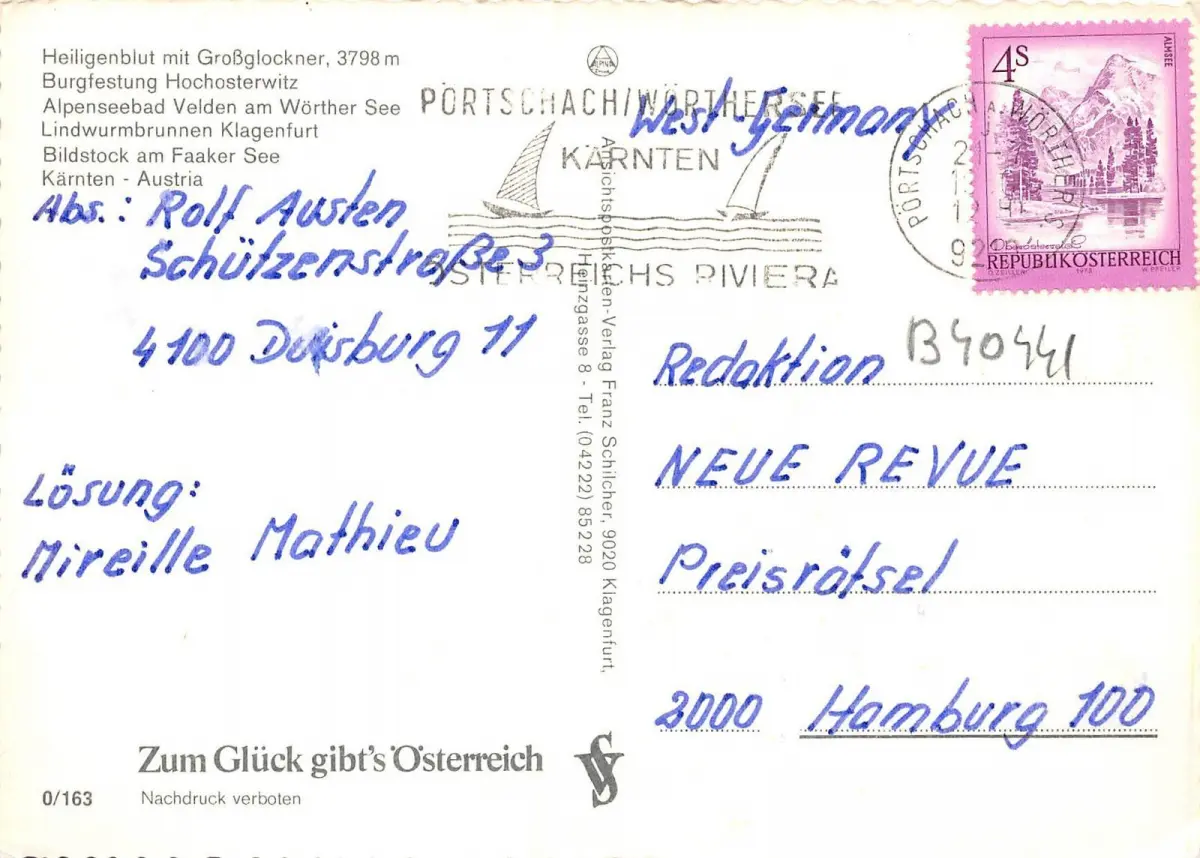 Heiligenblut mit Großglockner, 3798 m
Burgfestung Hochosterwitz
Alpenseebad Velden am Wörther See
Lindwurmbrunnen Klagenfurt
Bildstock am Faaker See
Kärnten - Austria
Abs.: Rolf Austen
Schützenstraße 3
4100 Duisburg 11
Lösung:
Mireille Mathieu
Zum Glück gibt's Österreich
0/163 Nachdruck verboten
Ansichtspostkarten-Verlag Franz Schilcher, 9020 Klagenfurt,
Heinzgasse 8 - Tel. (04222) 85228
PÖRTSCHACH/WÖRTHERSEE
KÄRNTEN
ÖSTERREICHS RIVIERA
West-Germany
PÖRTSCHACH A. WÖRTHER S
4S
ALMSEE
REPUBLIK ÖSTERREICH
1973
B40441
Redaktion
NEUE REVUE
Preisrätsel
2000 Hamburg 100